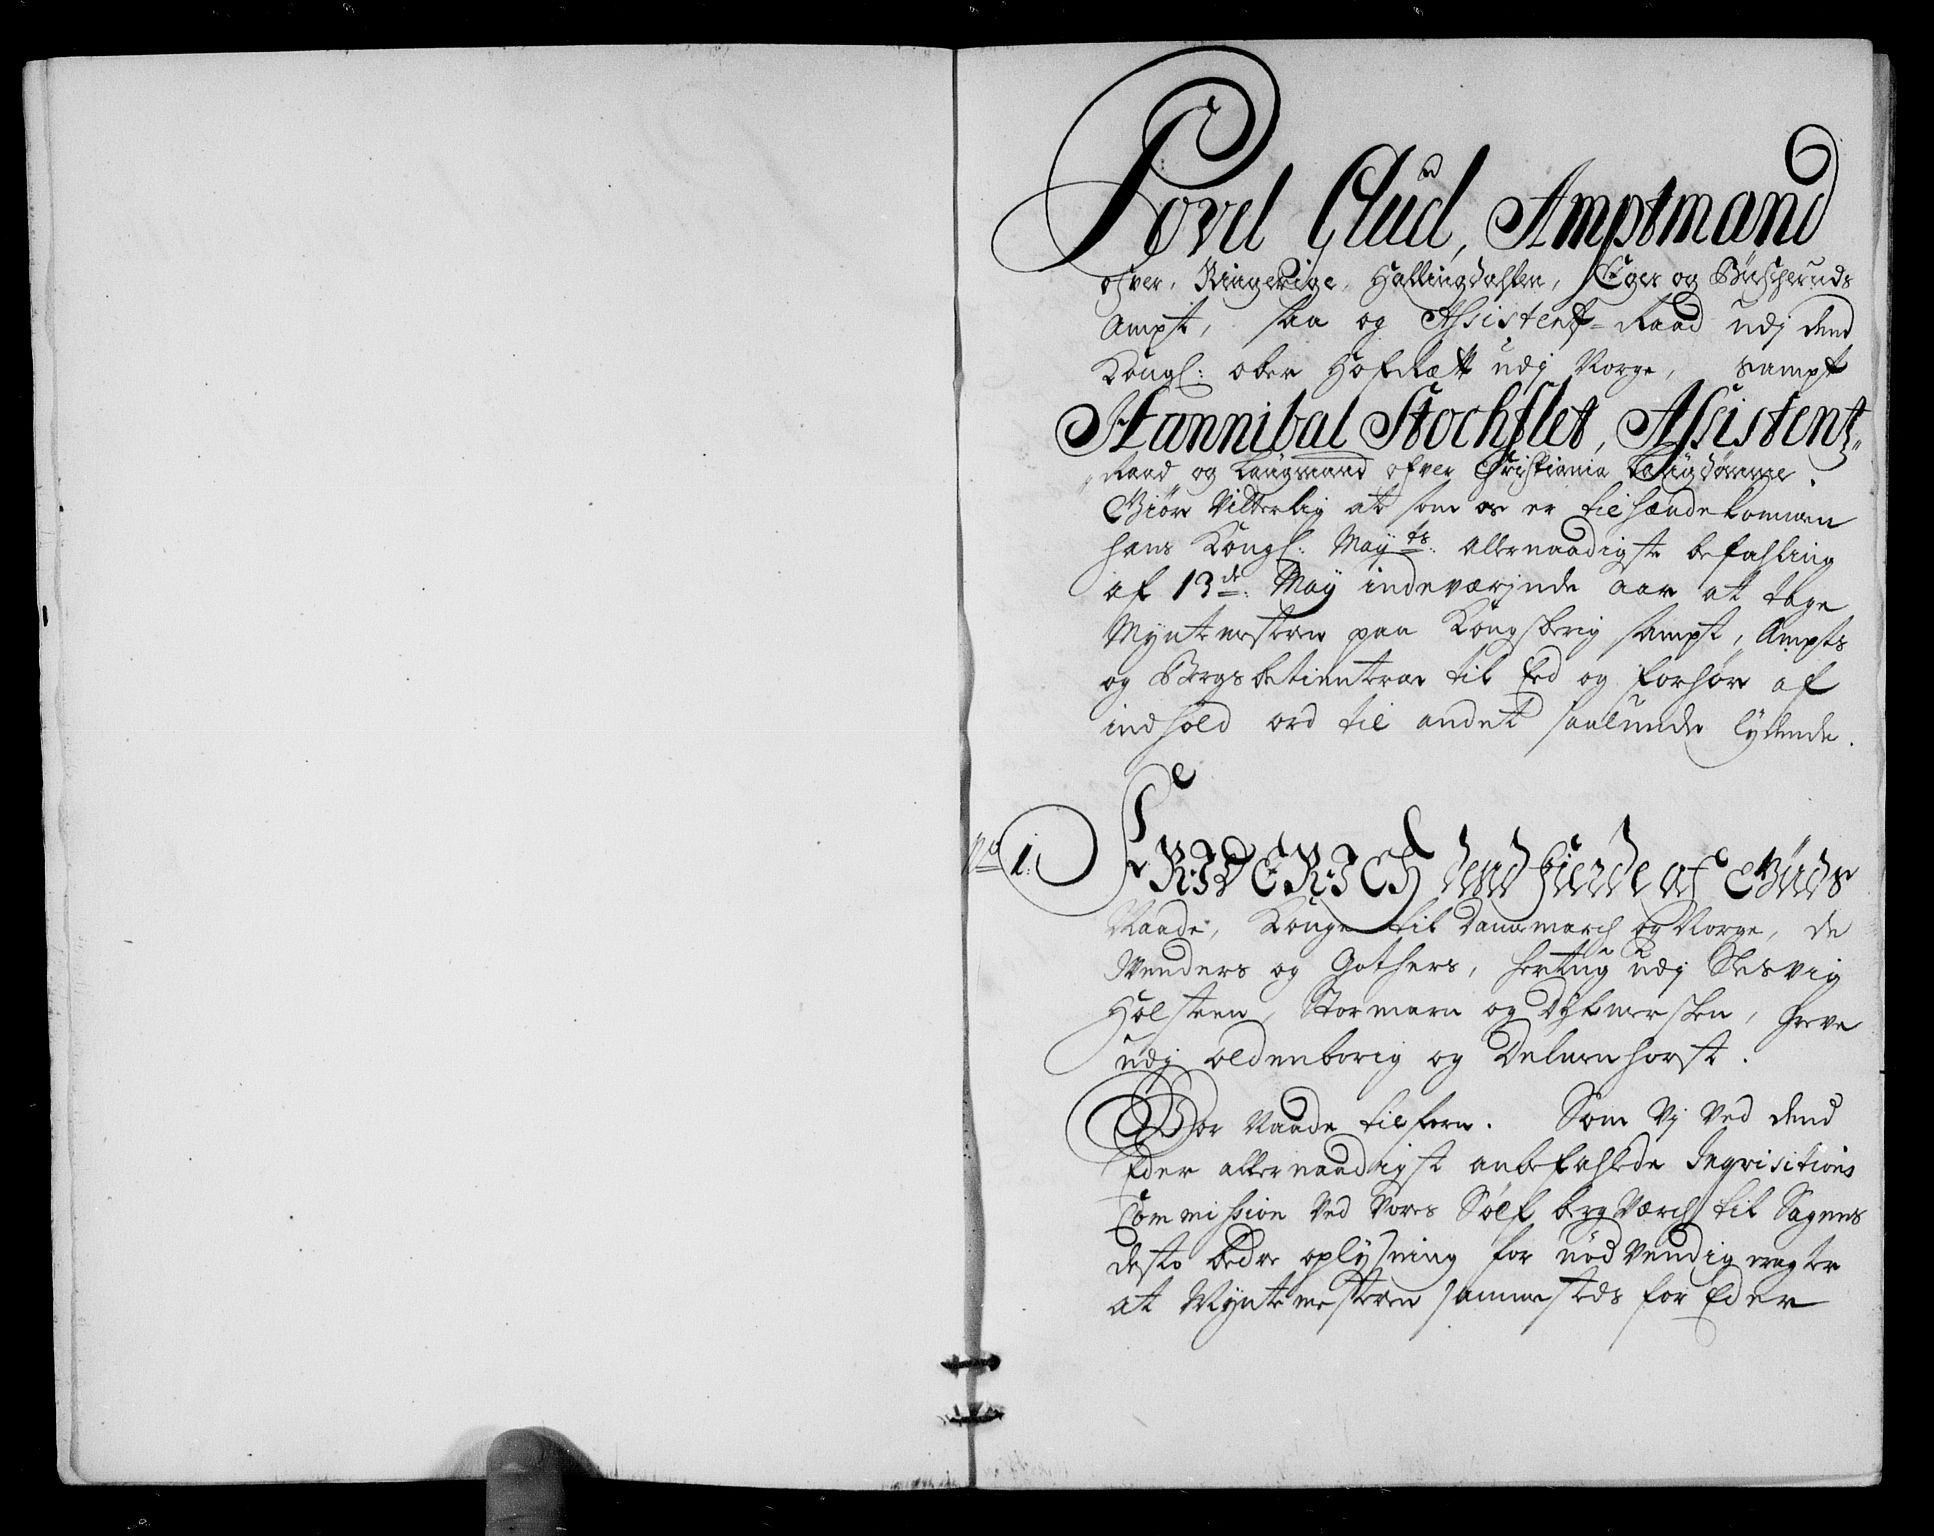 Povel Glud, Amptmand
ofver, Ringerige, Hallingdahlen, Eger og Buscheruds
Ampt, saa og Assistentz-Raad udj dend
Kongl: ober HofRætt udj Norge, sampt
Hannibal Stochflet, Assistentz
Raad og Laugmand ofver Christiania Laugdømme.
Giøre Vitterlig at som os er tilhændekommen
hans Kongl: Mayts: allernaadigste befahling
af 13de: May indeværende aar at tage
Myntemesteren paa Kongsberig sampt, Ampts
og Bergsbetienterne til Eed og forhør af
indhold ord til andet saaledes lydende.
No 1:
FRIDERICH dend fierde af Guds
Naade, Konge til Danmarch og Norge, de
Wenders og Gothers, hertug udj Slesvig
Holsteen, Stormarn og Dytmersken, Greve
udj Oldenborig og Delmenhorst.
Vor Naade tilforn. Som Vj Ved dend
Eder allernaadigst anbefahlede Inqvisitions
Commission Ved Vores Sølf bergVærch til Sagens
desto bedre oplysning for nødVendig eragter
at Myntemesteren sammesteds for Eder